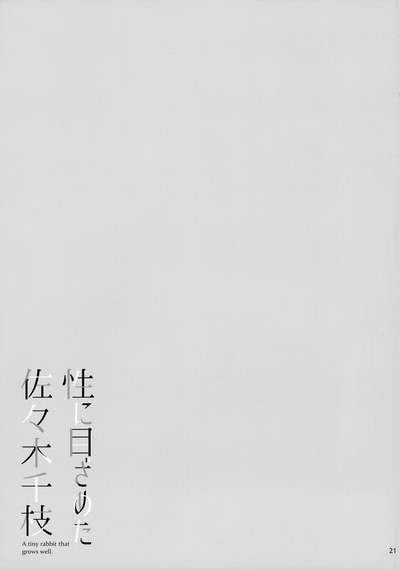 性に目ざめた
佐々木千枝
A tiny rabbit that
grows well.
21